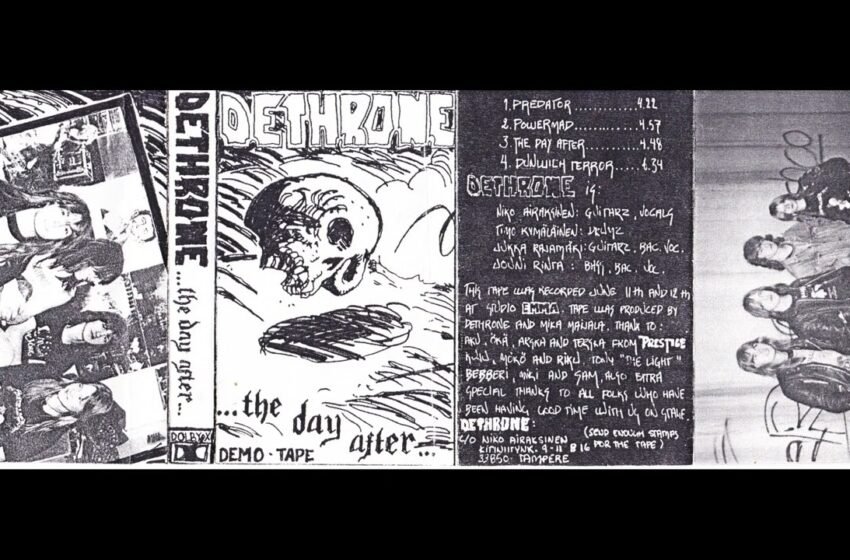 DETHRONE ...the day after...
DOLBY
DETHRONE
...the day
after...
DEMO-TAPE
1. PREDATOR ............ 4.22
2. POWERMAD ......... 4.57
3. THE DAY AFTER ....... 4.48
4. DUNWICH TERROR ..... 6.34
DETHRONE is:
NIKO AIRAKSINEN: GUITARZ, VOCALS
TIMO KYMÄLÄINEN:
JUKKA RAJAMÄKI: GUITARZ, BAC. VOC.
JOUNI RINTA : BAC. VOC.
THIS TAPE WAS RECORDED JUNE 11th AND 12th
AT STUDIO EMMA. TAPE WAS PRODUCED BY
DETHRONE AND MIKA MAIJALA. THANX TO:
AKU, ÖKÄ, ARSKA AND TERSKA FROM PRESTIGE
MÖKÖ AND RIKU, TONY "DIE LIGHT"
BEBBERI, MIKI AND SAM, ALSO EXTRA
SPECIAL THANKS TO ALL FOLKS WHO HAVE
BEEN HAVING GOOD TIME WITH US ON STAGE.
DETHRONE:
(SEND ENOUGH STAMPS
FOR THE TAPE)
C/O NIKO AIRAKSINEN
9-11 B 16
33850 TAMPERE